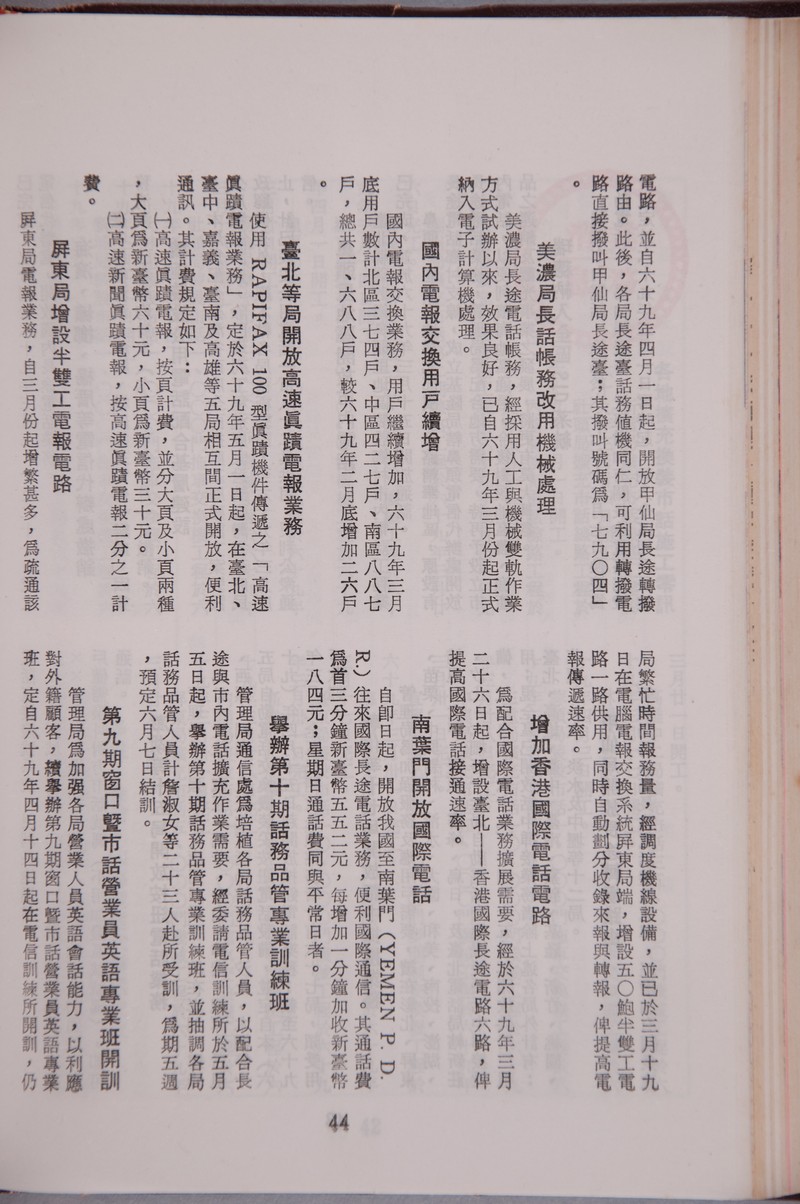 電路，並自六十九年四月一日起，開放甲仙局長途轉撥
路由。此後，各局長途臺話務值機同仁，可利用轉撥電
路直接撥叫甲仙局長途臺；其撥叫號碼爲「七九〇四」
。
美濃局長話帳務改用機械處理
美濃局長途電話帳務，經採用人工與機械雙軌作業
方式試辦以來，效果良好，已自六十九年三月份起正式
納入電子計算機處理。
國內電報交換用戶續增
國內電報交換業務，用戶繼續增加，六十九年三月
底用戶數計北區三七四戶、中區四二七戶、南區八八七
戶，總共一、六八八戶，較六十九年二月底增加二六戶
。
臺北等局開放高速眞蹟電報業務
使用 RAPIFAX 100 型眞蹟機件傳遞之「高速
眞蹟電報業務」，定於六十九年五月一日起，在臺北、
臺中、嘉義、臺南及高雄等五局相互間正式開放，便利
通訊。其計費規定如下：
㈠高速眞蹟電報，按頁計費，並分大頁及小頁兩種
，大頁爲新臺幣六十元，小頁爲新臺幣三十元。
㈡高速新聞眞蹟電報，按高速眞蹟電報二分之一計
費。
屏東局增設半雙工電報電路
屏東局電報業務，自三月份起增繁甚多，爲疏通該
局繁忙時間報務量，經調度機線設備，並已於三月十九
日在電腦電報交換系統屏東局端，增設五〇鮑半雙工電
路一路供用，同時自動劃分收錄來報與轉報，俾提高電
報傳遞速率。
增加香港國際電話電路
爲配合國際電話業務擴展需要，經於六十九年三月
二十六日起，增設臺北——香港國際長途電路六路，俾
提高國際電話接通速率。
南葉門開放國際電話
自卽日起，開放我國至南葉門（YEMEN P. D.
R.）往來國際長途電話業務，便利國際通信。其通話費
爲首三分鐘新臺幣五五二元，每增加一分鐘加收新臺幣
一八四元；星期日通話費同與平常日者。
舉辦第十期話務品管專業訓練班
管理局通信處爲培植各局話務品管人員，以配合長
途與市內電話擴充作業需要，經委請電信訓練所於五月
五日起，舉辦第十期話務品管專業訓練班，並抽調各局
話務品管人員計詹淑女等二十三人赴所受訓，爲期五週
，預定六月七日結訓。
第九期窗口暨市話營業員英語專業班開訓
管理局爲加强各局營業人員英語會話能力，以利應
對外籍顧客，續舉辦第九期窗口暨市話營業員英語專業
班，定自六十九年四月十四日起在電信訓練所開訓，仍
44